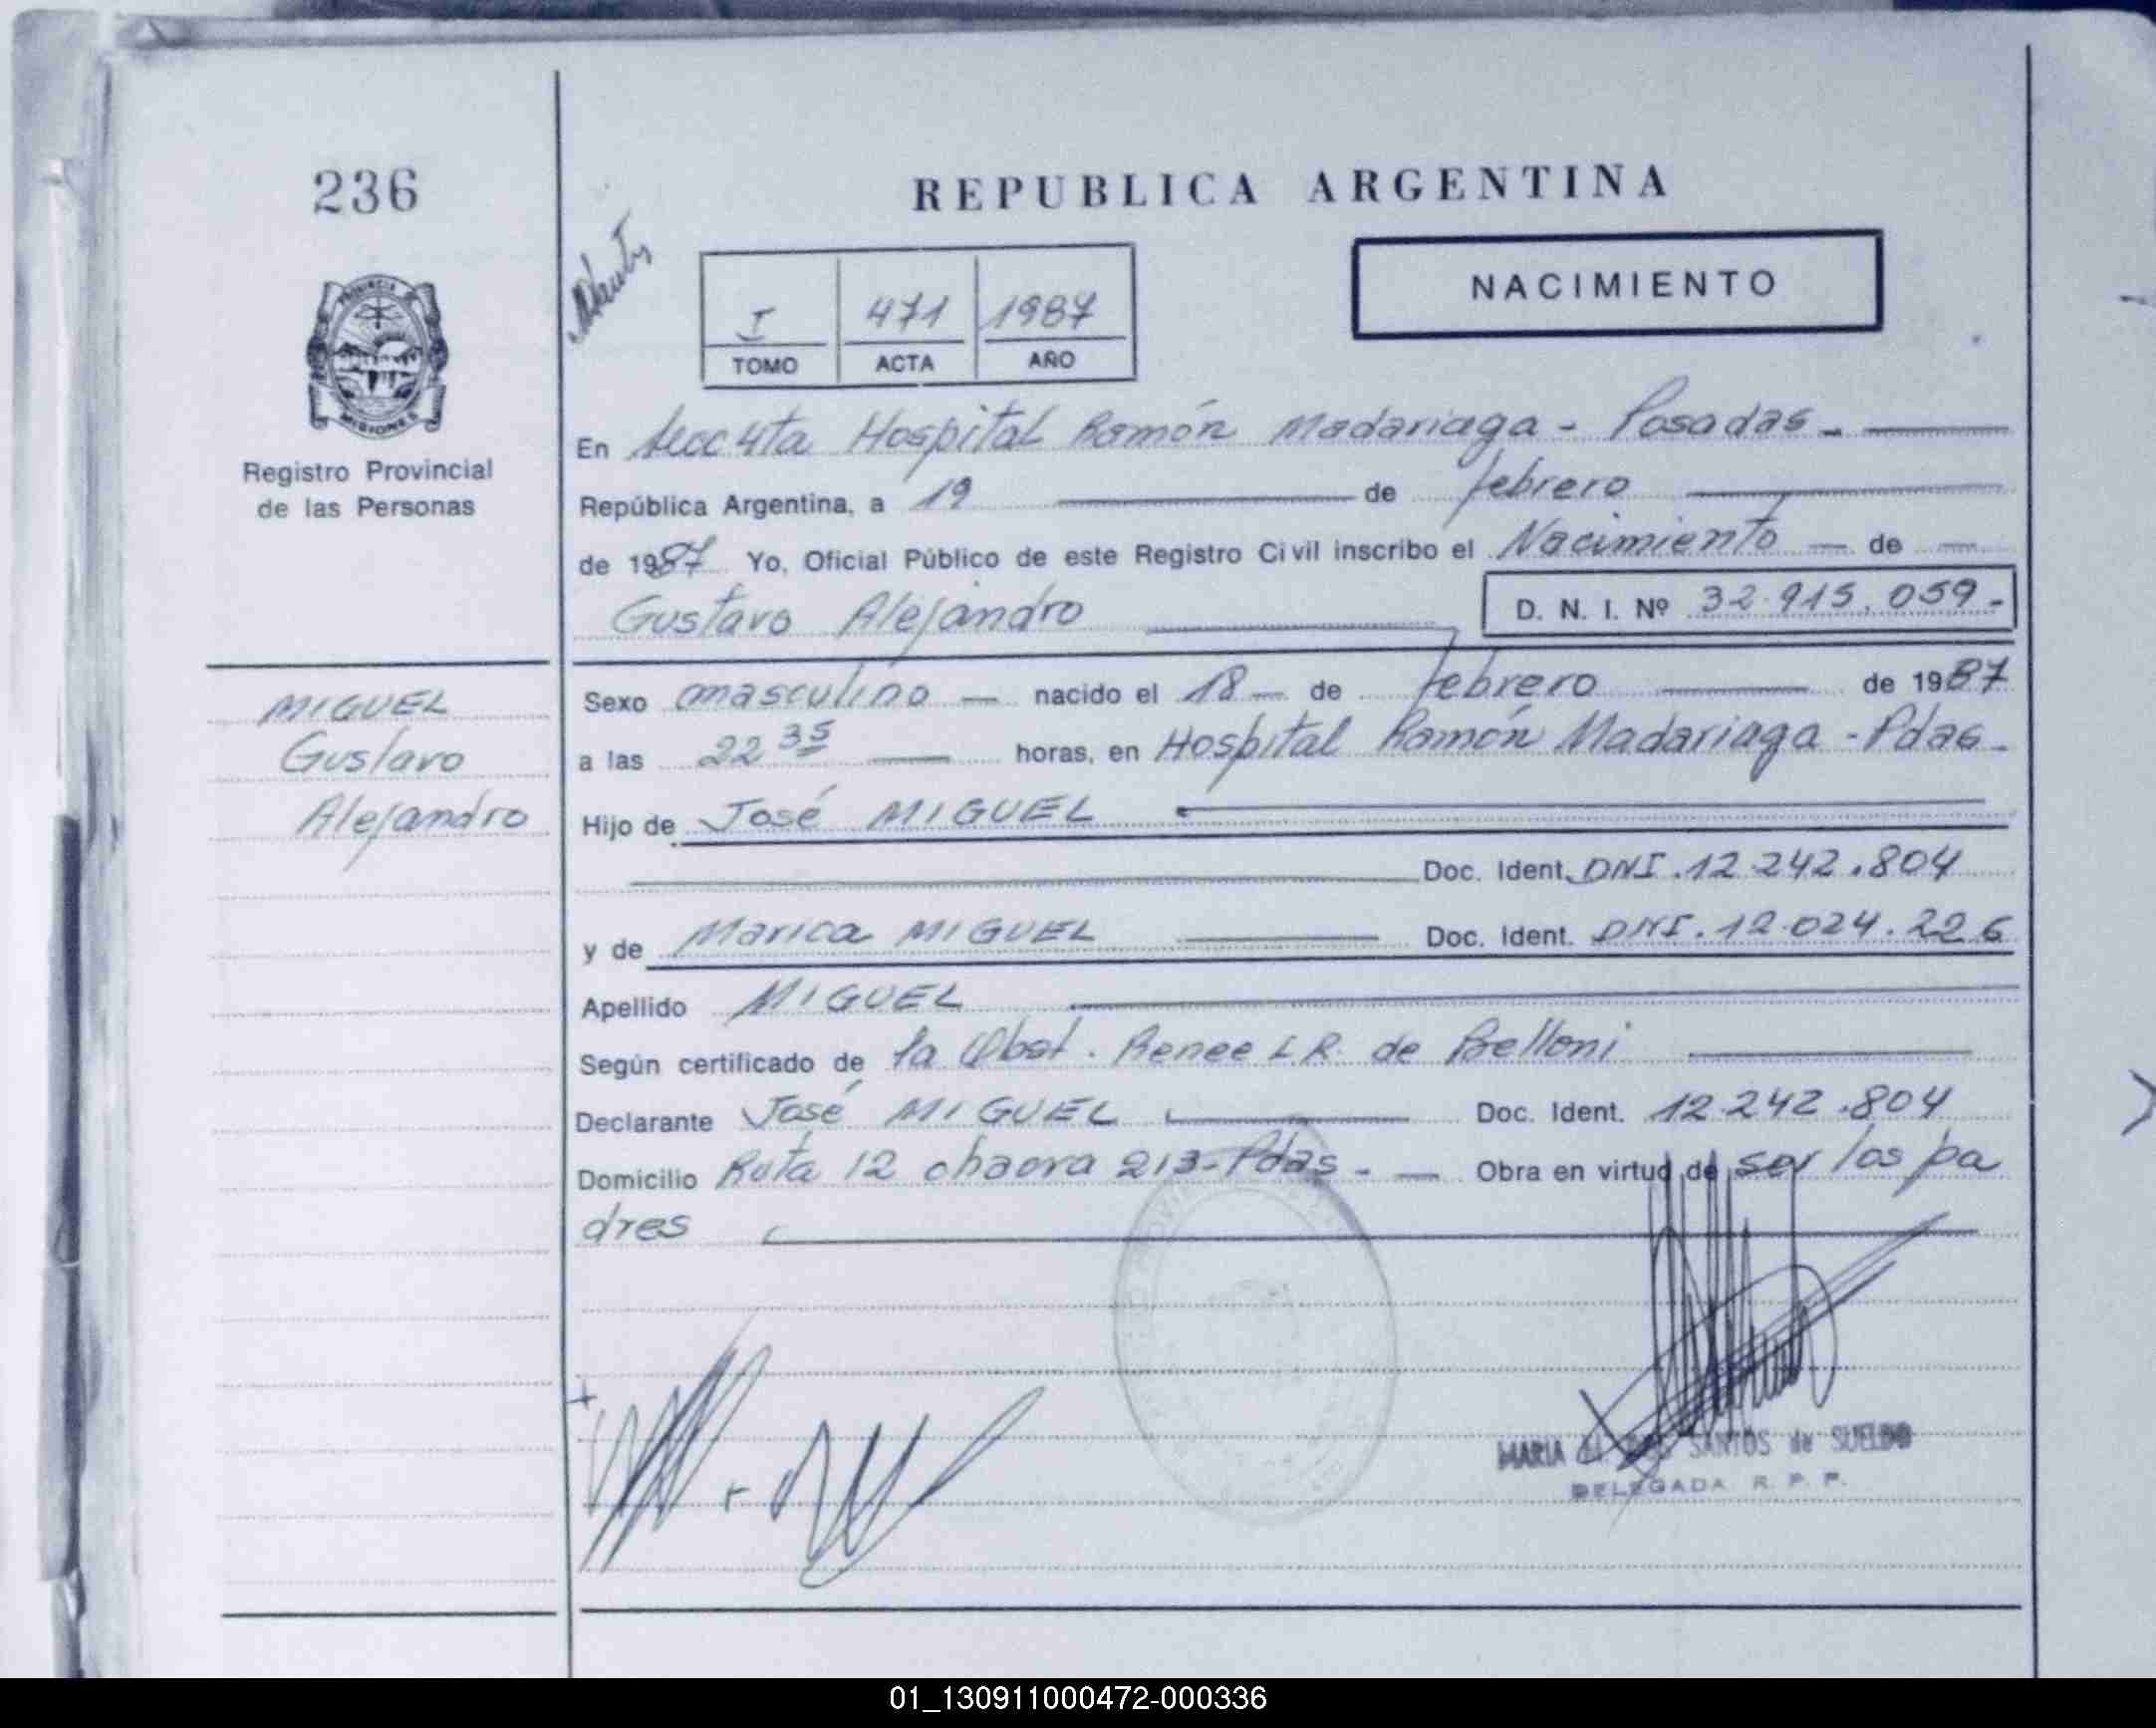 236
REPUBLICA ARGENTINA
PROVINCIA
MISIONES
Registro Provincial
de las Personas
I 471 1987
TOMO ACTA AÑO
NACIMIENTO
En Secc 4ta Hospital Ramón Madariaga - Posadas -
República Argentina, a 19 de febrero
de 1987 Yo, Oficial Público de este Registro Civil inscribo el Nacimiento de
Gustavo Alejandro D. N. I. Nº 32.915.059-
MIGUEL
Gustavo
Alejandro
Sexo masculino nacido el 18 de febrero de 1987
a las 22 35 horas, en Hospital Ramón Madariaga - Pdas -
Hijo de José MIGUEL
Doc. Ident. DNI. 12.242.804
y de Marica MIGUEL Doc. Ident. DNI. 12.024.226
Apellido MIGUEL
Según certificado de la Obst. Renee L R. de Belloni
Declarante José MIGUEL Doc. Ident. 12.242.804
Domicilio Ruta 12 chacra 213 - Pdas - Obra en virtud de ser los pa
dres
MARIA SANTOS de SUELDO
DELEGADA R. P. P.
01_130911000472-000336